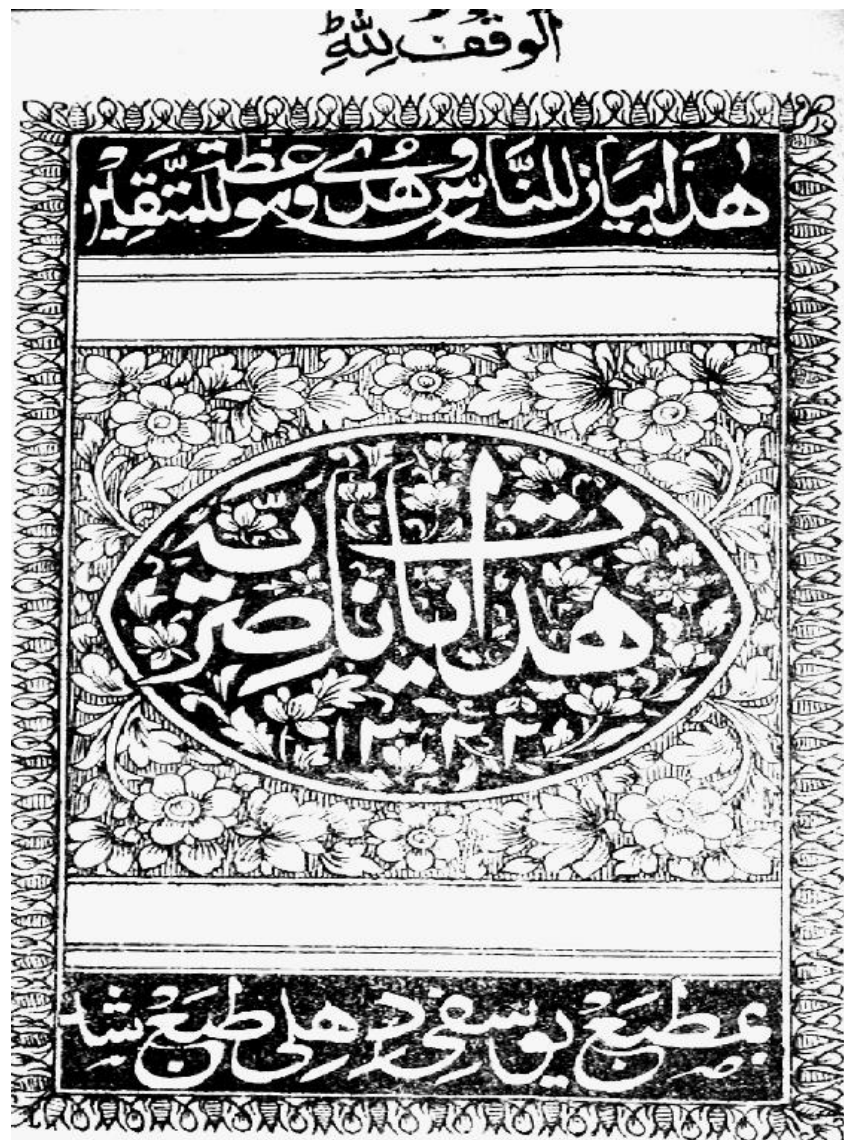 الوقف لِلّٰهِ
هٰذَا بَيَانٌ لِلنَّاسِ وَهُدًى وَمَوْعِظَةٌ لِلْمُتَّقِيْنَ
هدایات ناصریّه
۱۳۲۲
بمطبع یوسفی دهلی طبع شد